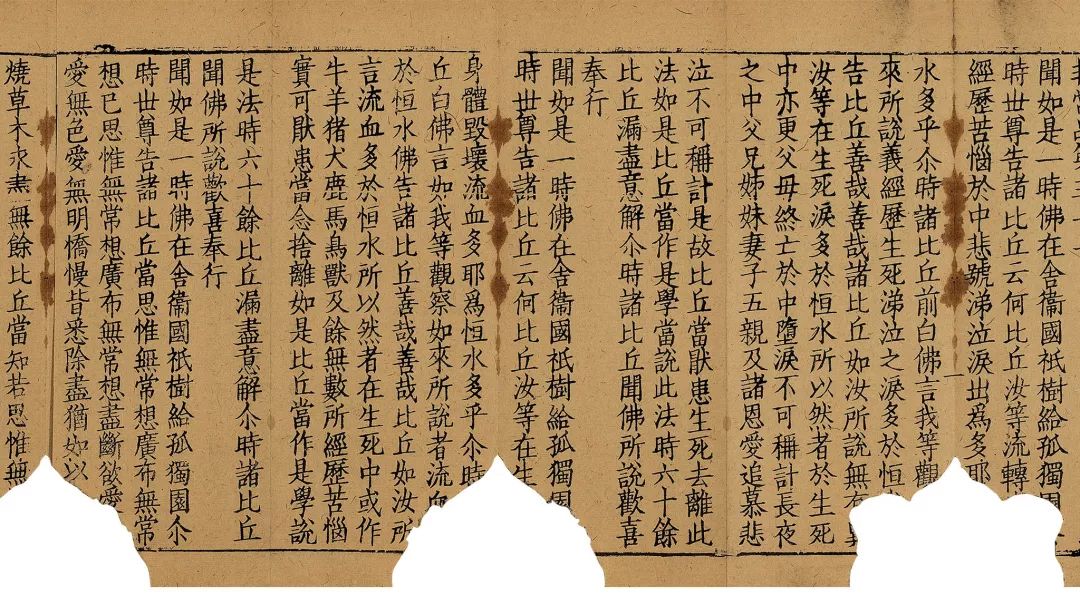 聞如是一時佛在舍衞國祇樹給孤獨園
時世尊告諸比丘云何比丘汝等流轉
經歷苦惱於中悲號涕泣淚出爲多耶
水多乎尒時諸比丘前白佛言我等觀
來所說義經歷生死涕泣之淚多於恒
告比丘善哉善哉諸比丘如汝所說無有
汝等在生死淚多於恒水所以然者於生死
中亦更父母終亡於中墮淚不可稱計長夜
之中父兄姊妹妻子五親及諸恩愛追慕悲
泣不可稱計是故比丘當猒患生死去離此
法如是比丘當作是學當說此法時六十餘
比丘漏盡意解尒時諸比丘聞佛所說歡喜
奉行
聞如是一時佛在舍衞國祇樹給孤獨園
時世尊告諸比丘云何比丘汝等在生
身體毀壞流血多耶爲恒水多乎尒時
丘白佛言如我等觀察如來所說者流血
於恒水佛告諸比丘善哉善哉比丘如汝所
言流血多於恒水所以然者在生死中或作
牛羊猪犬鹿馬鳥獸及餘無數所經歷苦惱
實可猒患當念捨離如是比丘當作是學說
是法時六十餘比丘漏盡意解尒時諸比丘
聞佛所說歡喜奉行
聞如是一時佛在舍衞國祇樹給孤獨園尒
時世尊告諸比丘當思惟無常想廣布無常
想已思惟無常想廣布無常想盡斷欲愛
愛無色愛無明憍慢皆悉除盡猶如以
燒草木永盡無餘比丘當知若思惟無